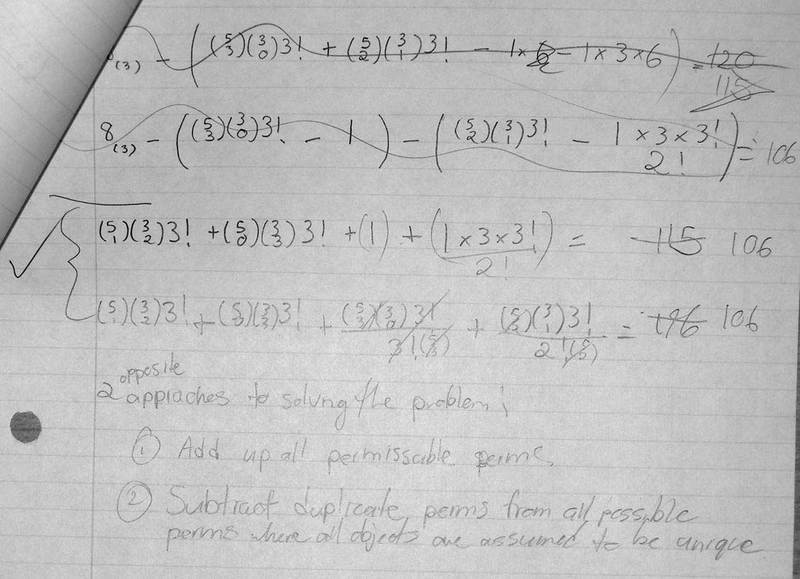 (3) - ((5 3)(3 0)3! + (5 2)(3 1)3! - 1×6 - 1×3×6) = 120
115
8(3) - ((5 3)(3 0)3! - 1) - ((5 2)(3 1)3! - 1×3×3!/2!) = 106
√ { (5 1)(3 2)3! + (5 0)(3 3)3! + (1) + (1×3×3!/2!) = 115 106
(5 1)(3 2)3! + (5 0)(3 3)3! + (5 3)(3 0)3!/3!(5 3) + (5 2)(3 1)3!/2!(5 2) = 196 106
2 opposite appraches to solving the problem:
① Add up all permissable perms.
② Subtract duplicate perms from all possible
perms where all objects are assumed to be unique